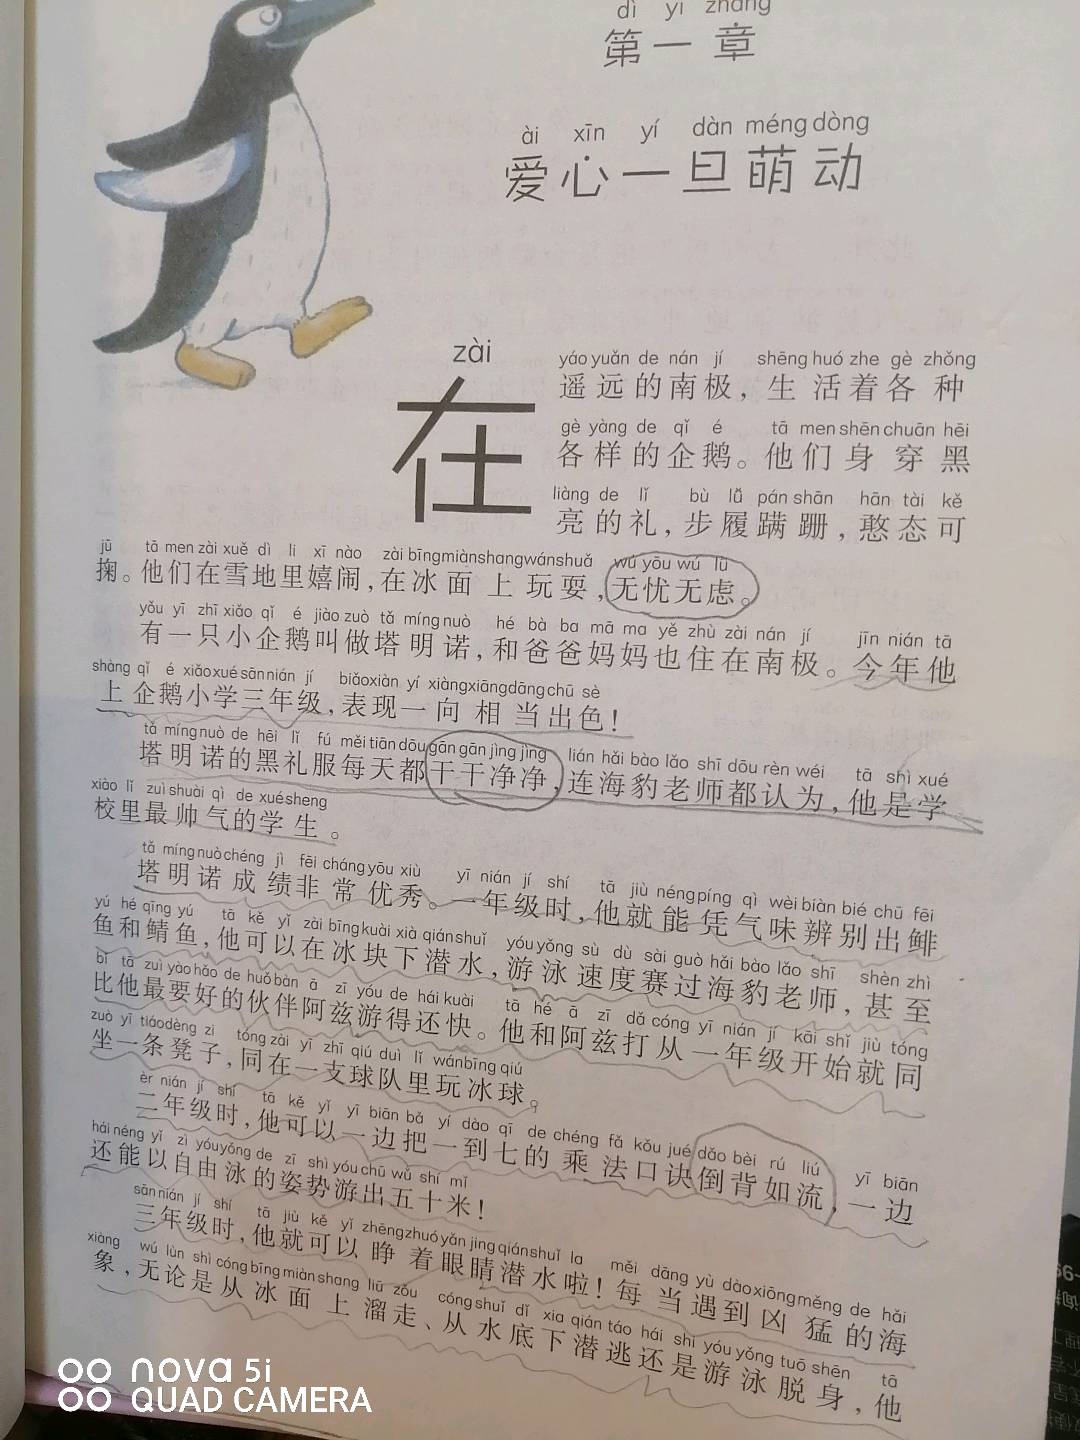 dì yī zhāng
第一章
ài xīn yí dàn méng dòng
爱心一旦萌动
zài
在
yáo yuǎn de nán jí shēng huó zhe gè zhǒng
遥远的南极，生活着各种
gè yàng de qǐ é tā men shēn chuān hēi
各样的企鹅。他们身穿黑
liàng de lǐ bù lǚ pán shān hān tài kě
亮的礼，步履蹒跚，憨态可
jū tā men zài xuě dì li xī nào zài bīng miàn shang wán shuǎ wú yōu wú lǜ
掬。他们在雪地里嬉闹，在冰面上玩耍，无忧无虑。
yǒu yī zhī xiǎo qǐ é jiào zuò tǎ míng nuò hé bà ba mā ma yě zhù zài nán jí jīn nián tā
有一只小企鹅叫做塔明诺，和爸爸妈妈也住在南极。今年他
shàng qǐ é xiǎo xué sān nián jí biǎo xiàn yí xiàng xiāng dāng chū sè
上企鹅小学三年级，表现一向相当出色！
tǎ míng nuò de hēi lǐ fú měi tiān dōu gān gān jìng jìng lián hǎi bào lǎo shī dōu rèn wéi tā shì xué
塔明诺的黑礼服每天都干干净净，连海豹老师都认为，他是学
xiào lǐ zuì shuài qì de xué sheng
校里最帅气的学生。
tǎ míng nuò chéng jì fēi cháng yōu xiù yī nián jí shí tā jiù néng píng qì wèi biàn bié chū fēi
塔明诺成绩非常优秀。一年级时，他就能凭气味辨别出鲱
yú hé qīng yú tā kě yǐ zài bīng kuài xià qián shuǐ yóu yǒng sù dù sài guò hǎi bào lǎo shī shèn zhì
鱼和鲭鱼，他可以在冰块下潜水，游泳速度赛过海豹老师，甚至
bǐ tā zuì yào hǎo de huǒ bàn ā zī yóu de hái kuài tā hé ā zī dǎ cóng yī nián jí kāi shǐ jiù tóng
比他最要好的伙伴阿兹游得还快。他和阿兹打从一年级开始就同
zuò yī tiáo dèng zi tóng zài yī zhī qiú duì lǐ wán bīng qiú
坐一条凳子，同在一支球队里玩冰球。
èr nián jí shí tā kě yǐ yī biān bǎ yí dào qī de chéng fǎ kǒu jué dǎo bèi rú liú yī biān
二年级时，他可以一边把一到七的乘法口诀倒背如流，一边
hái néng yǐ zì yóu yǒng de zī shì yóu chū wǔ shí mǐ
还能以自由泳的姿势游出五十米！
sān nián jí shí tā jiù kě yǐ zhēng zhuó yǎn jing qián shuǐ la měi dāng yù dào xiōng měng de hǎi
三年级时，他就可以睁着眼睛潜水啦！每当遇到凶猛的海
xiàng wú lùn shì cóng bīng miàn shang liū zǒu cóng shuǐ dǐ xia qián táo hái shì yóu yǒng tuō shēn tā
象，无论是从冰面上溜走、从水底下潜逃还是游泳脱身，他
nova 5i
QUAD CAMERA